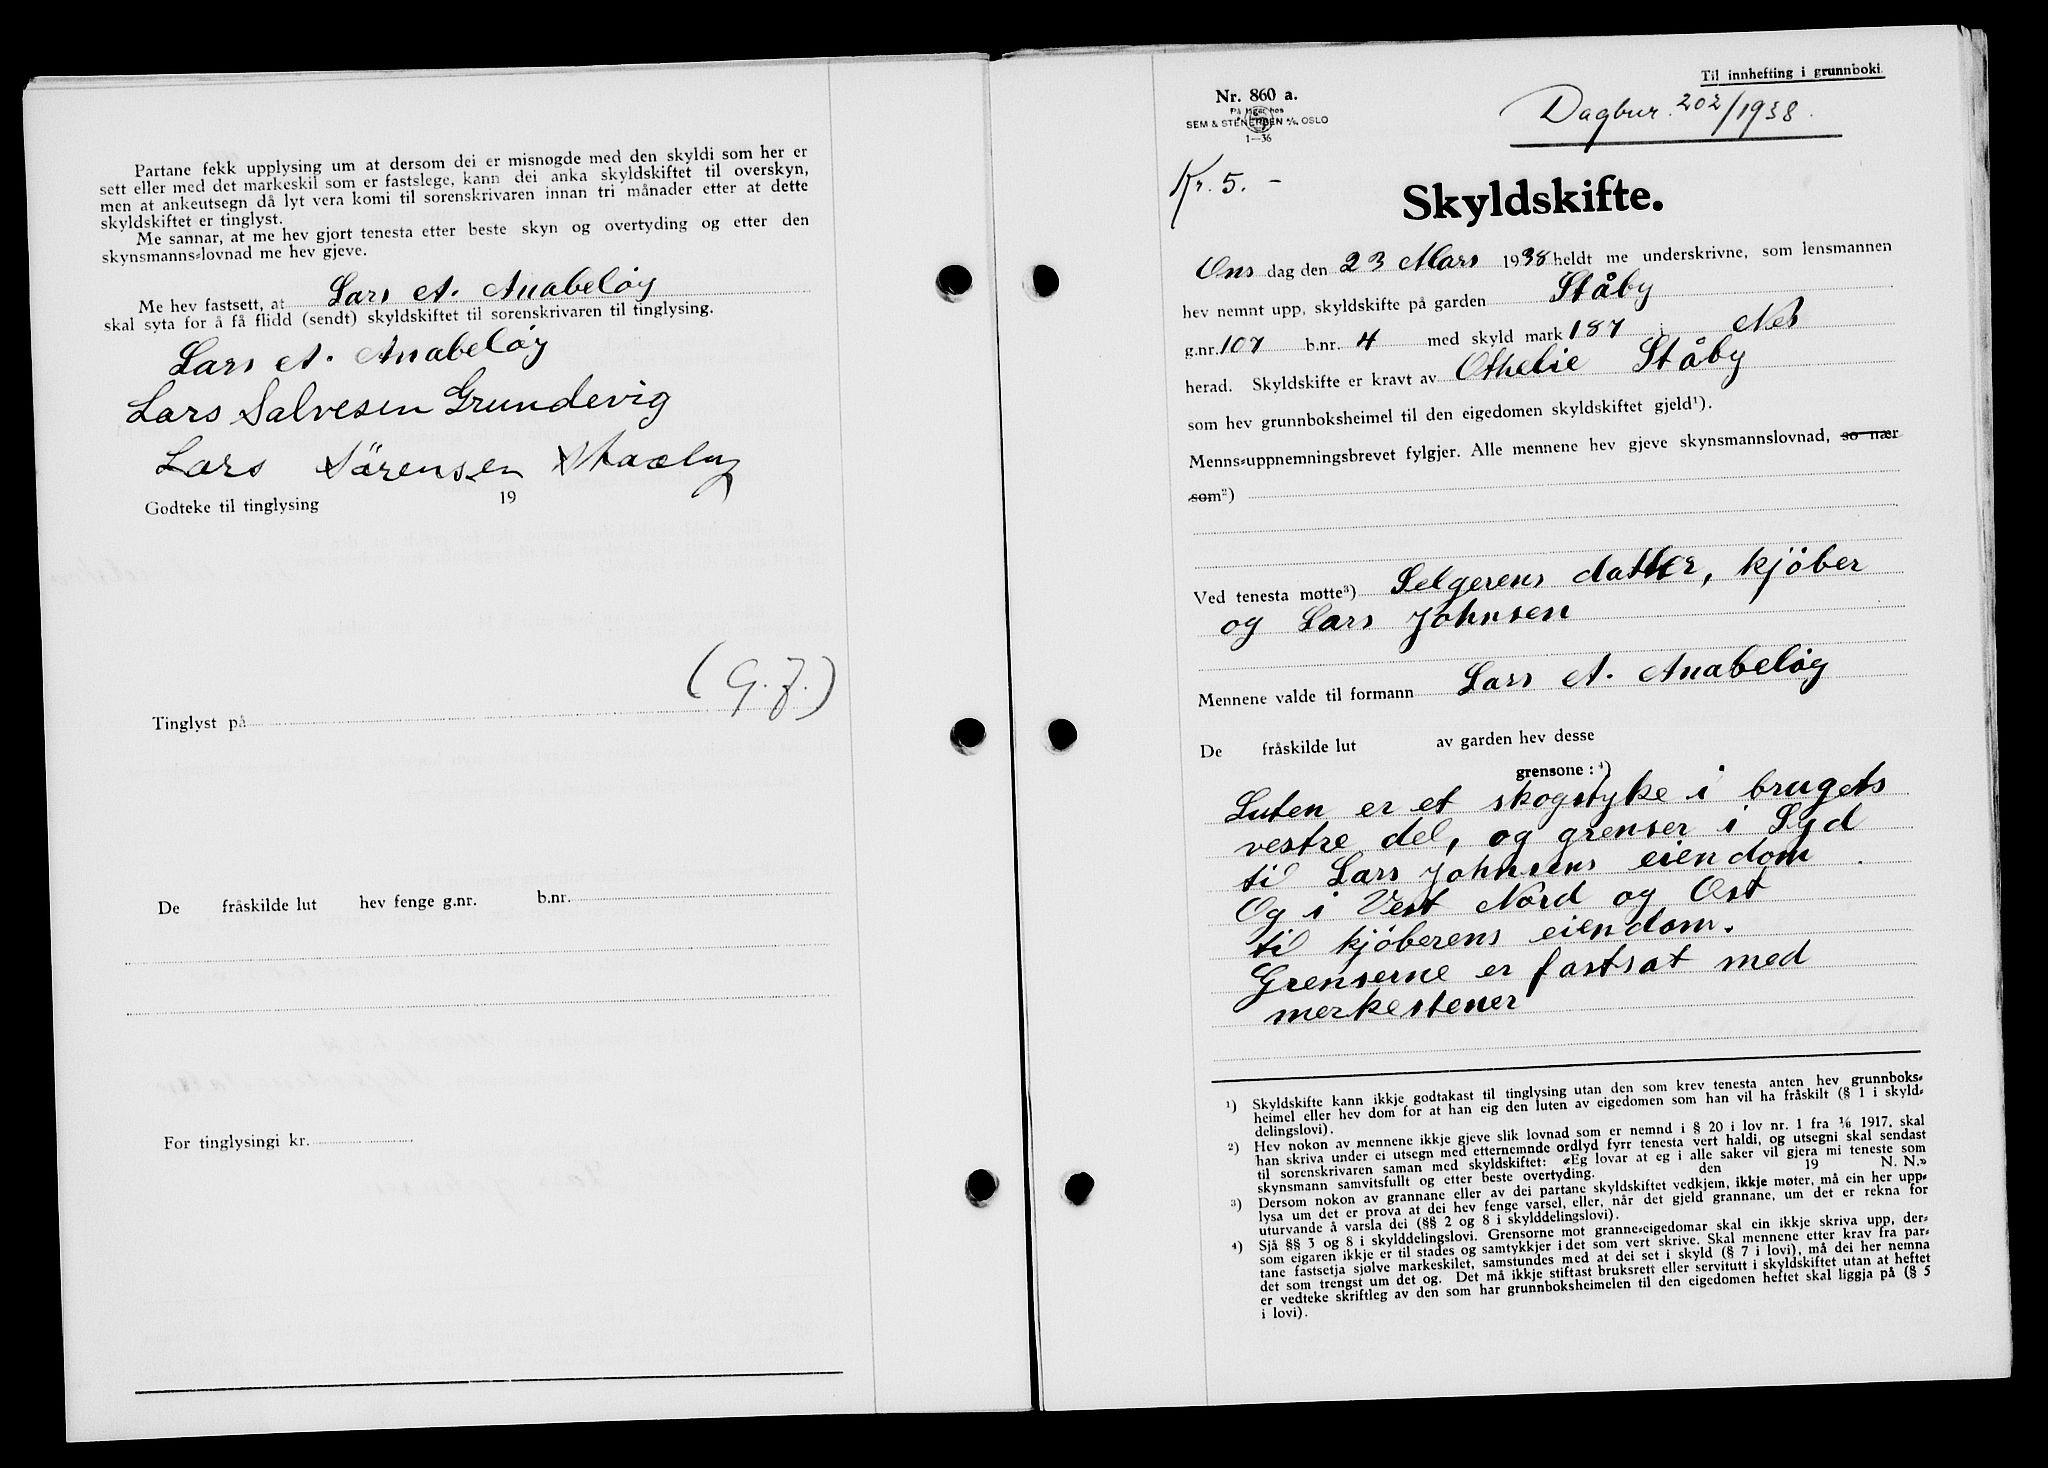 Partane fekk upplysing um at dersom dei er misnøgde med den skyldi som her er
sett eller med det markeskil som er fastslege, kann dei anka skyldskiftet til overskyn,
men at ankeutsegn då lyt vera komi til sorenskrivaren innan tri månader etter at dette
skyldskiftet er tinglyst.
Me sannar, at me hev gjort tenesta etter beste skyn og overtyding og etter den
skynsmanns-lovnad me hev gjeve.
Me hev fastsett, at Lars A. Anabeløy
skal syta for å få flidd (sendt) skyldskiftet til sorenskrivaren til tinglysing.
Lars A. Anabeløy
Lars Salvesen Grundevig
Lars Sörensen
Godteke til tinglysing 19
(G.J.)
Tinglyst på
De fråskilde lut hev fenge g.nr. b.nr.
For tinglysingi kr.
Til innhefting i grunnboki.
Nr. 860 a.
På lager hos
SEM & STENERSEN A/S, OSLO
1—36
Dagbnr. 202/1938.
Kr. 5. -
Skyldskifte.
Ons dag den 23 Mars 1938 heldt me underskrivne, som lensmannen
hev nemnt upp, skyldskifte på garden Ståby
g.nr. 107 b.nr. 4 med skyld mark 187 i Nes
herad. Skyldskifte er kravt av Othelie Ståby
som hev grunnboksheimel til den eigedomen skyldskiftet gjeld¹).
Menns-uppnemningsbrevet fylgjer. Alle mennene hev gjeve skynsmannslovnad, so nær
som²)
Ved tenesta møtte³) Selgerens datter, kjöber
og Lars Johnsen
Mennene valde til formann Lars A. Anabeløy
De fråskilde lut av garden hev desse
grensone:⁴)
Luten er et skogstyke i brugets
vestre del, og grenser i Syd
til Lars Johnsens eiendom
Og i Vest Nord og Øst
til kjöberens eiendom.
Grenserne er fastsat med
merkestener
¹) Skyldskifte kann ikkje godtakast til tinglysing utan den som krev tenesta anten hev grunnboks-
heimel eller hev dom for at han eig den luten av eigedomen som han vil ha fråskilt (§ 1 i skyld-
delingslovi).
²) Hev nokon av mennene ikkje gjeve slik lovnad som er nemnd i § 20 i lov nr. 1 fra 1/6 1917, skal
han skriva under ei utsegn med etternemnde ordlyd fyrr tenesta vert haldi, og utsegni skal sendast
til sorenskrivaren saman med skyldskiftet: «Eg lovar at eg i alle saker vil gjera mi teneste som
skynsmann samvitsfullt og etter beste overtyding. den 19 N. N.»
³) Dersom nokon av grannane eller av dei partane skyldskiftet vedkjem, ikkje møter, må ein her upp-
lysa um det er prova at dei hev fenge varsel, eller, når det gjeld grannane, um det er rekna for
uturvande å varsla dei (§§ 2 og 8 i skylddelingslovi).
⁴) Sjå §§ 3 og 8 i skylddelingslovi. Grensorne mot granne-eigedomar skal ein ikkje skriva upp, der-
som eigaren ikkje er til stades og samtykkjer i det som vert skrive. Skal mennene etter krav fra par-
tane fastsetja sjølve markeskilet, samstundes med at dei set i skyld (§ 7 i lovi), må dei her nemna
det som trengst um det og. Det må ikkje stiftast bruksrett eller servitutt i skyldskiftet utan at heftet
er vedteke skriftleg av den som har grunnboksheimelen til den eigedomen heftet skal liggja på (§ 5
i lovi).